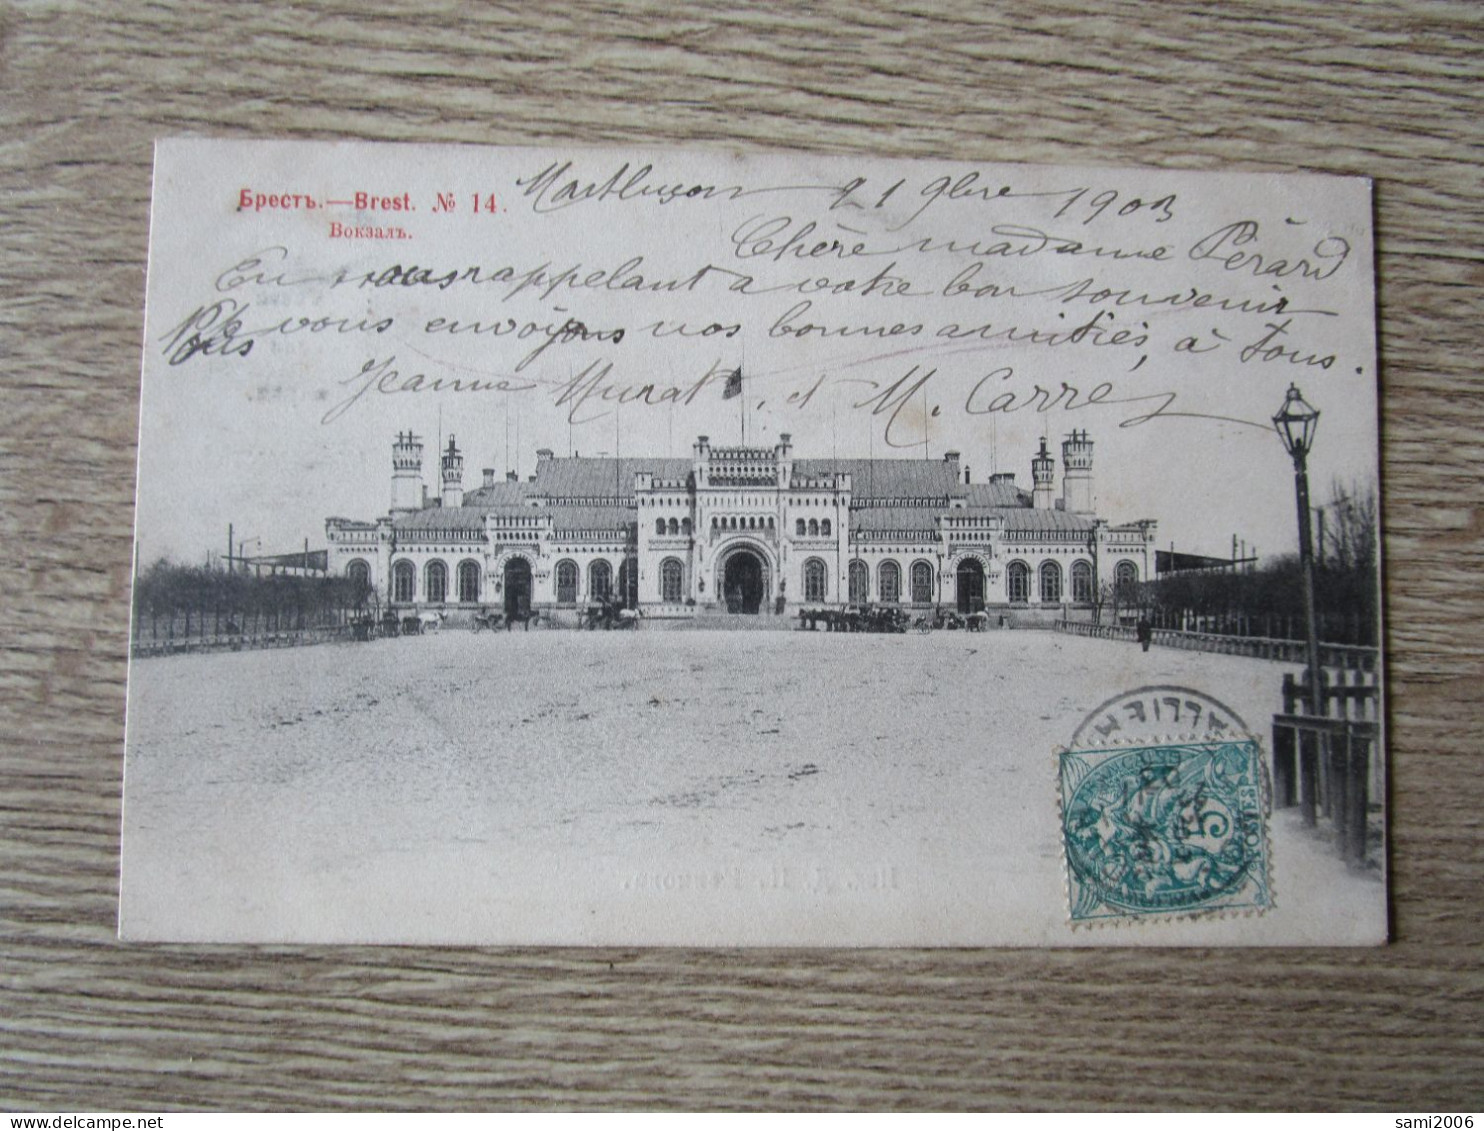 Брестъ.—Brest. № 14.
Вокзалъ.
Montluçon 21 9bre 1903
Chère madame Pérard
En nous rappelant à votre bon souvenir
Nous vous envoyons nos bonnes amitiés, à tous.
Jeanne Murat, et M. Carré
5
POSTES
sami2006